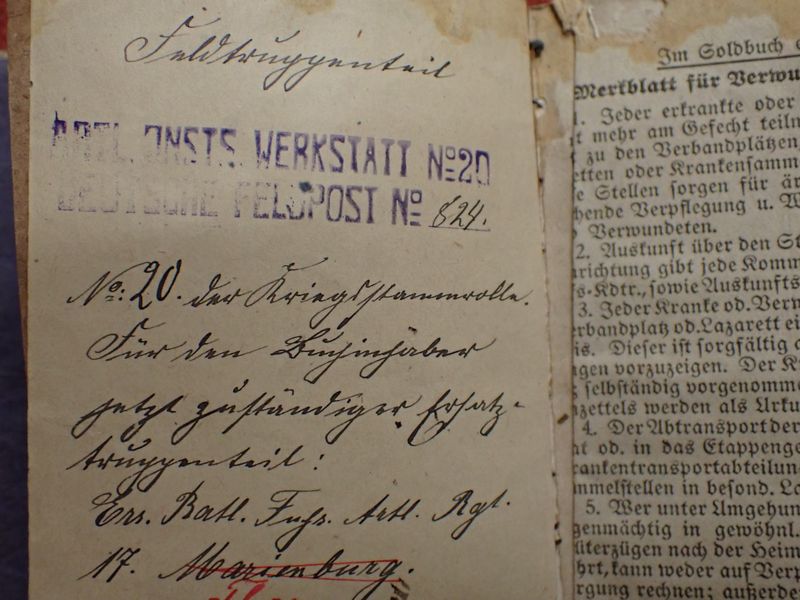 Feldtruppenteil
ARTL. INSTS. WERKSTATT No 20
DEUTSCHE FELDPOST No 824.
No: 20. der Kriegsstammrolle.
Für den Buchinhaber
jetzt zuständiger Ersatz-
truppenteil:
Ers. Batl. Fußs. Artl. Rgt.
17. Marienburg.
Im Soldbuch
Merkblatt für Verwu
1. Jeder erkrankte oder
t mehr am Gefecht teiln
t zu den Verbandplätzen,
etten oder Krankensamm
e Stellen sorgen für är
hende Verpflegung u. W
Verwundeten.
2. Auskunft über den St
richtung gibt jede Komm
s-Kdtr., sowie Auskunfts
3. Jeder Kranke od. Verw
rbandplatz od. Lazarett ei
is. Dieser ist sorgfältig
gen vorzuzeigen. Der K
selbständig vorgenomme
zettels werden als Urku
4. Der Abtransport der
t od. in das Etappenge
rankentransportabteilun
mmelstellen in besond. La
5. Wer unter Umgehun
genmächtig in gewöhnl.
üterzügen nach der Heim
hrt, kann weder auf Verp
rgung rechnen; außerde